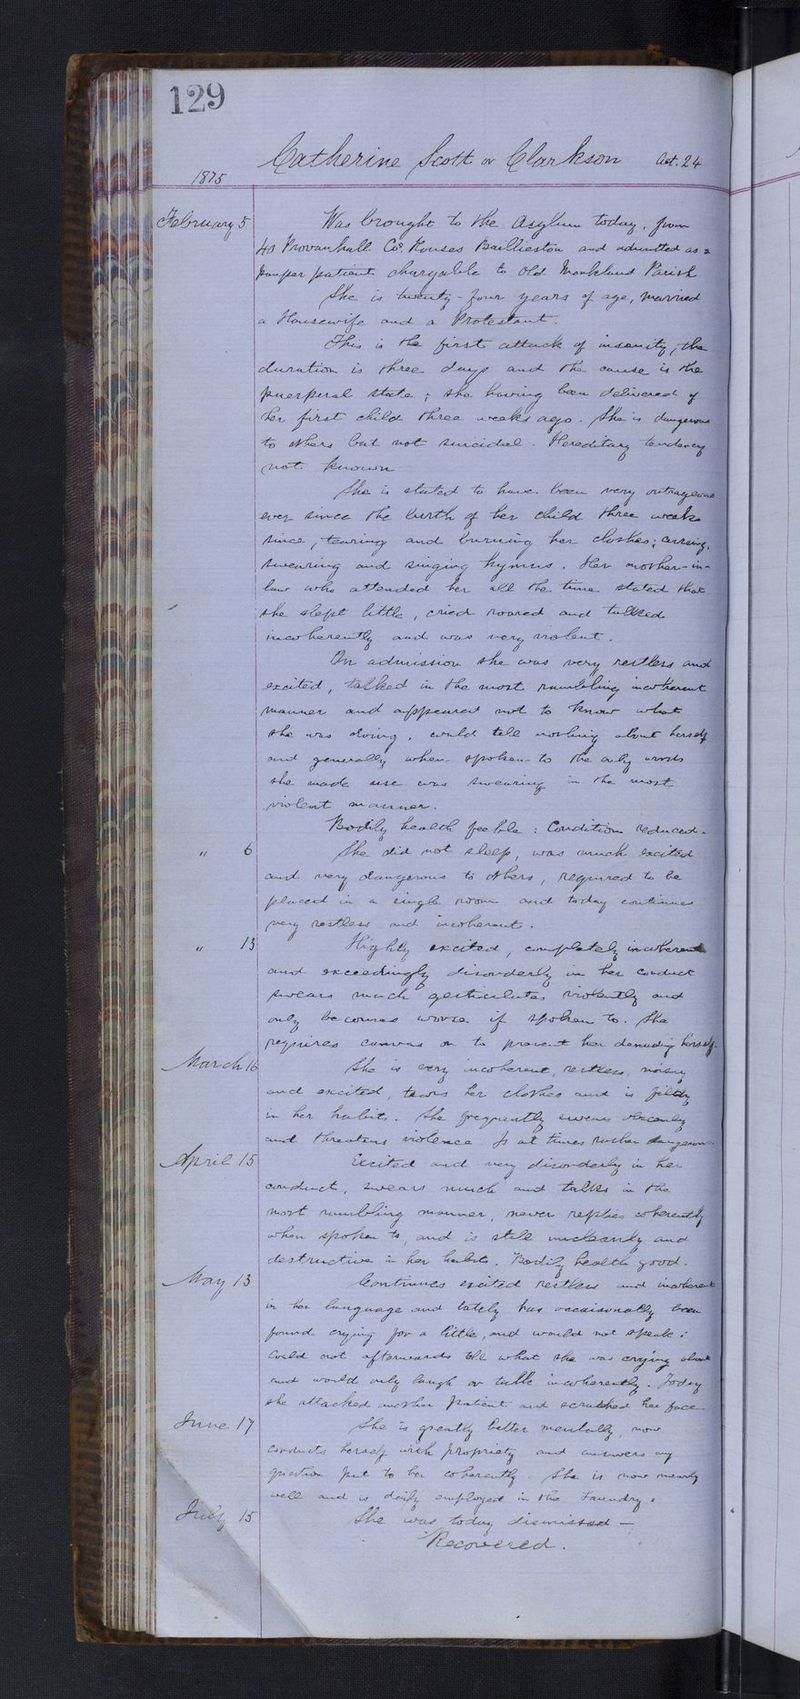 129
Catherine Scott or Clarkson Aet. 24
1875
February 5 Was brought to the Asylum today, from
40 Provanhall Co's. Houses Baillieston and admitted as a
pauper patient chargeable to Old Monkland Parish
She is twenty-four years of age, married
a Housewife and a Protestant.
This is the first attack of insanity, the
duration is three days and the cause is the
puerperal state; she having been delivered of
her first child three weeks ago. She is dangerous
to others but not suicidal. Hereditary tendency
not known
She is stated to have been very outrageous
ever since the birth of her child three weeks
since, tearing and burning her clothes; cursing,
swearing and singing hymns. Her mother-in-
law who attended her all the time stated that
she slept little, cried roared and talked
incoherently and was very violent.
On admission she was very restless and
excited, talked in the most rambling incoherent
manner and appeared not to know what
she was doing, could tell nothing about herself
and generally when spoken to the only words
she made use was swearing in the most
violent manner.
Bodily health feeble: Condition reduced.
" 6 She did not sleep, was much excited
and very dangerous to others, required to be
placed in a single room and today continues
very restless and incoherent.
" 13 Highly excited, completely incoherent
and exceedingly disorderly in her conduct
swears much gesticulates violently and
only becomes worse if spoken to. She
requires canvas on to prevent her denuding herself.
March 16 She is very incoherent, restless, noisy
and excited, tears her clothes and is filthy
in her habits. She frequently swears obscenely
and threatens violence Is at times rather dangerous
April 15 Excited and very disorderly in her
conduct, swears much and talks in the
most rambling manner, never replies coherently
when spoken to, and is still uncleanly and
destructive in her habits. Bodily health good.
May 13 Continues excited restless and incoherent
in her language and lately has occaisonally been
found crying for a little, and would not speak:
Could not afterwards tell what she was crying about
and would only laugh or talk incoherently. Today
she attacked another patient and scratched her face
June 17 She is greatly better mentally, now
conducts herself with propriety and answers any
question put to her coherently. She is now nearly
well and is daily employed in the Laundry.
July 15 She was today dismissed —
Recovered.